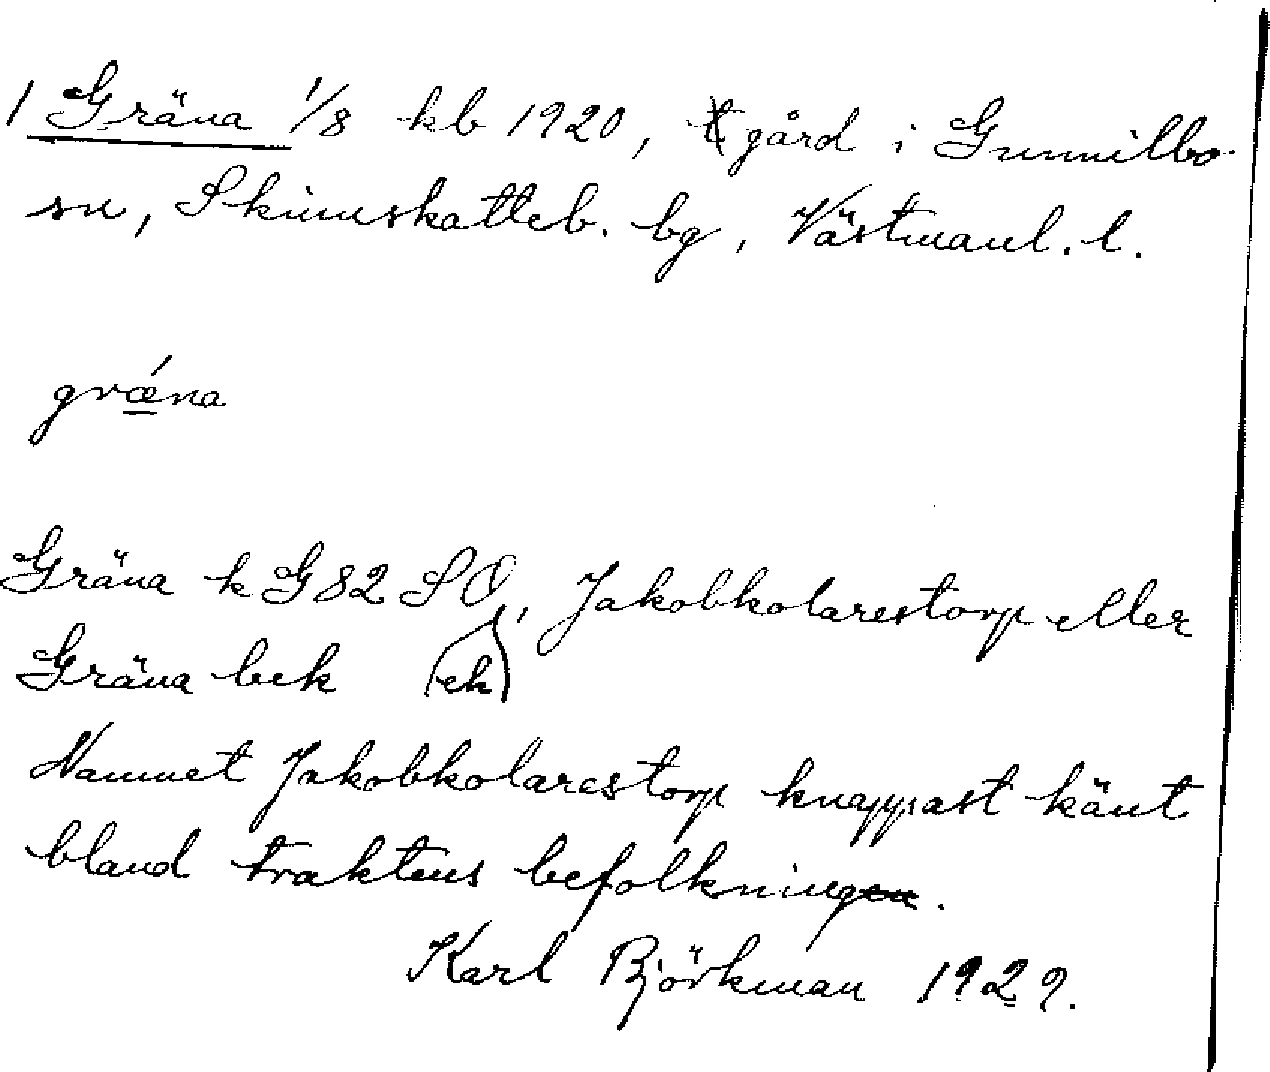 1 Gräna 1/8 kb 1920, gård i Gunnilbo
sn, Skinnskatteb. bg, Västmanl. l.
grǽna
Gräna k G82 SO, Jakobkolarestorp eller
Gräna bek (ek)
Namnet Jakobkolarestorp knappast känt
bland traktens befolkning.
Karl Björkman 1929.